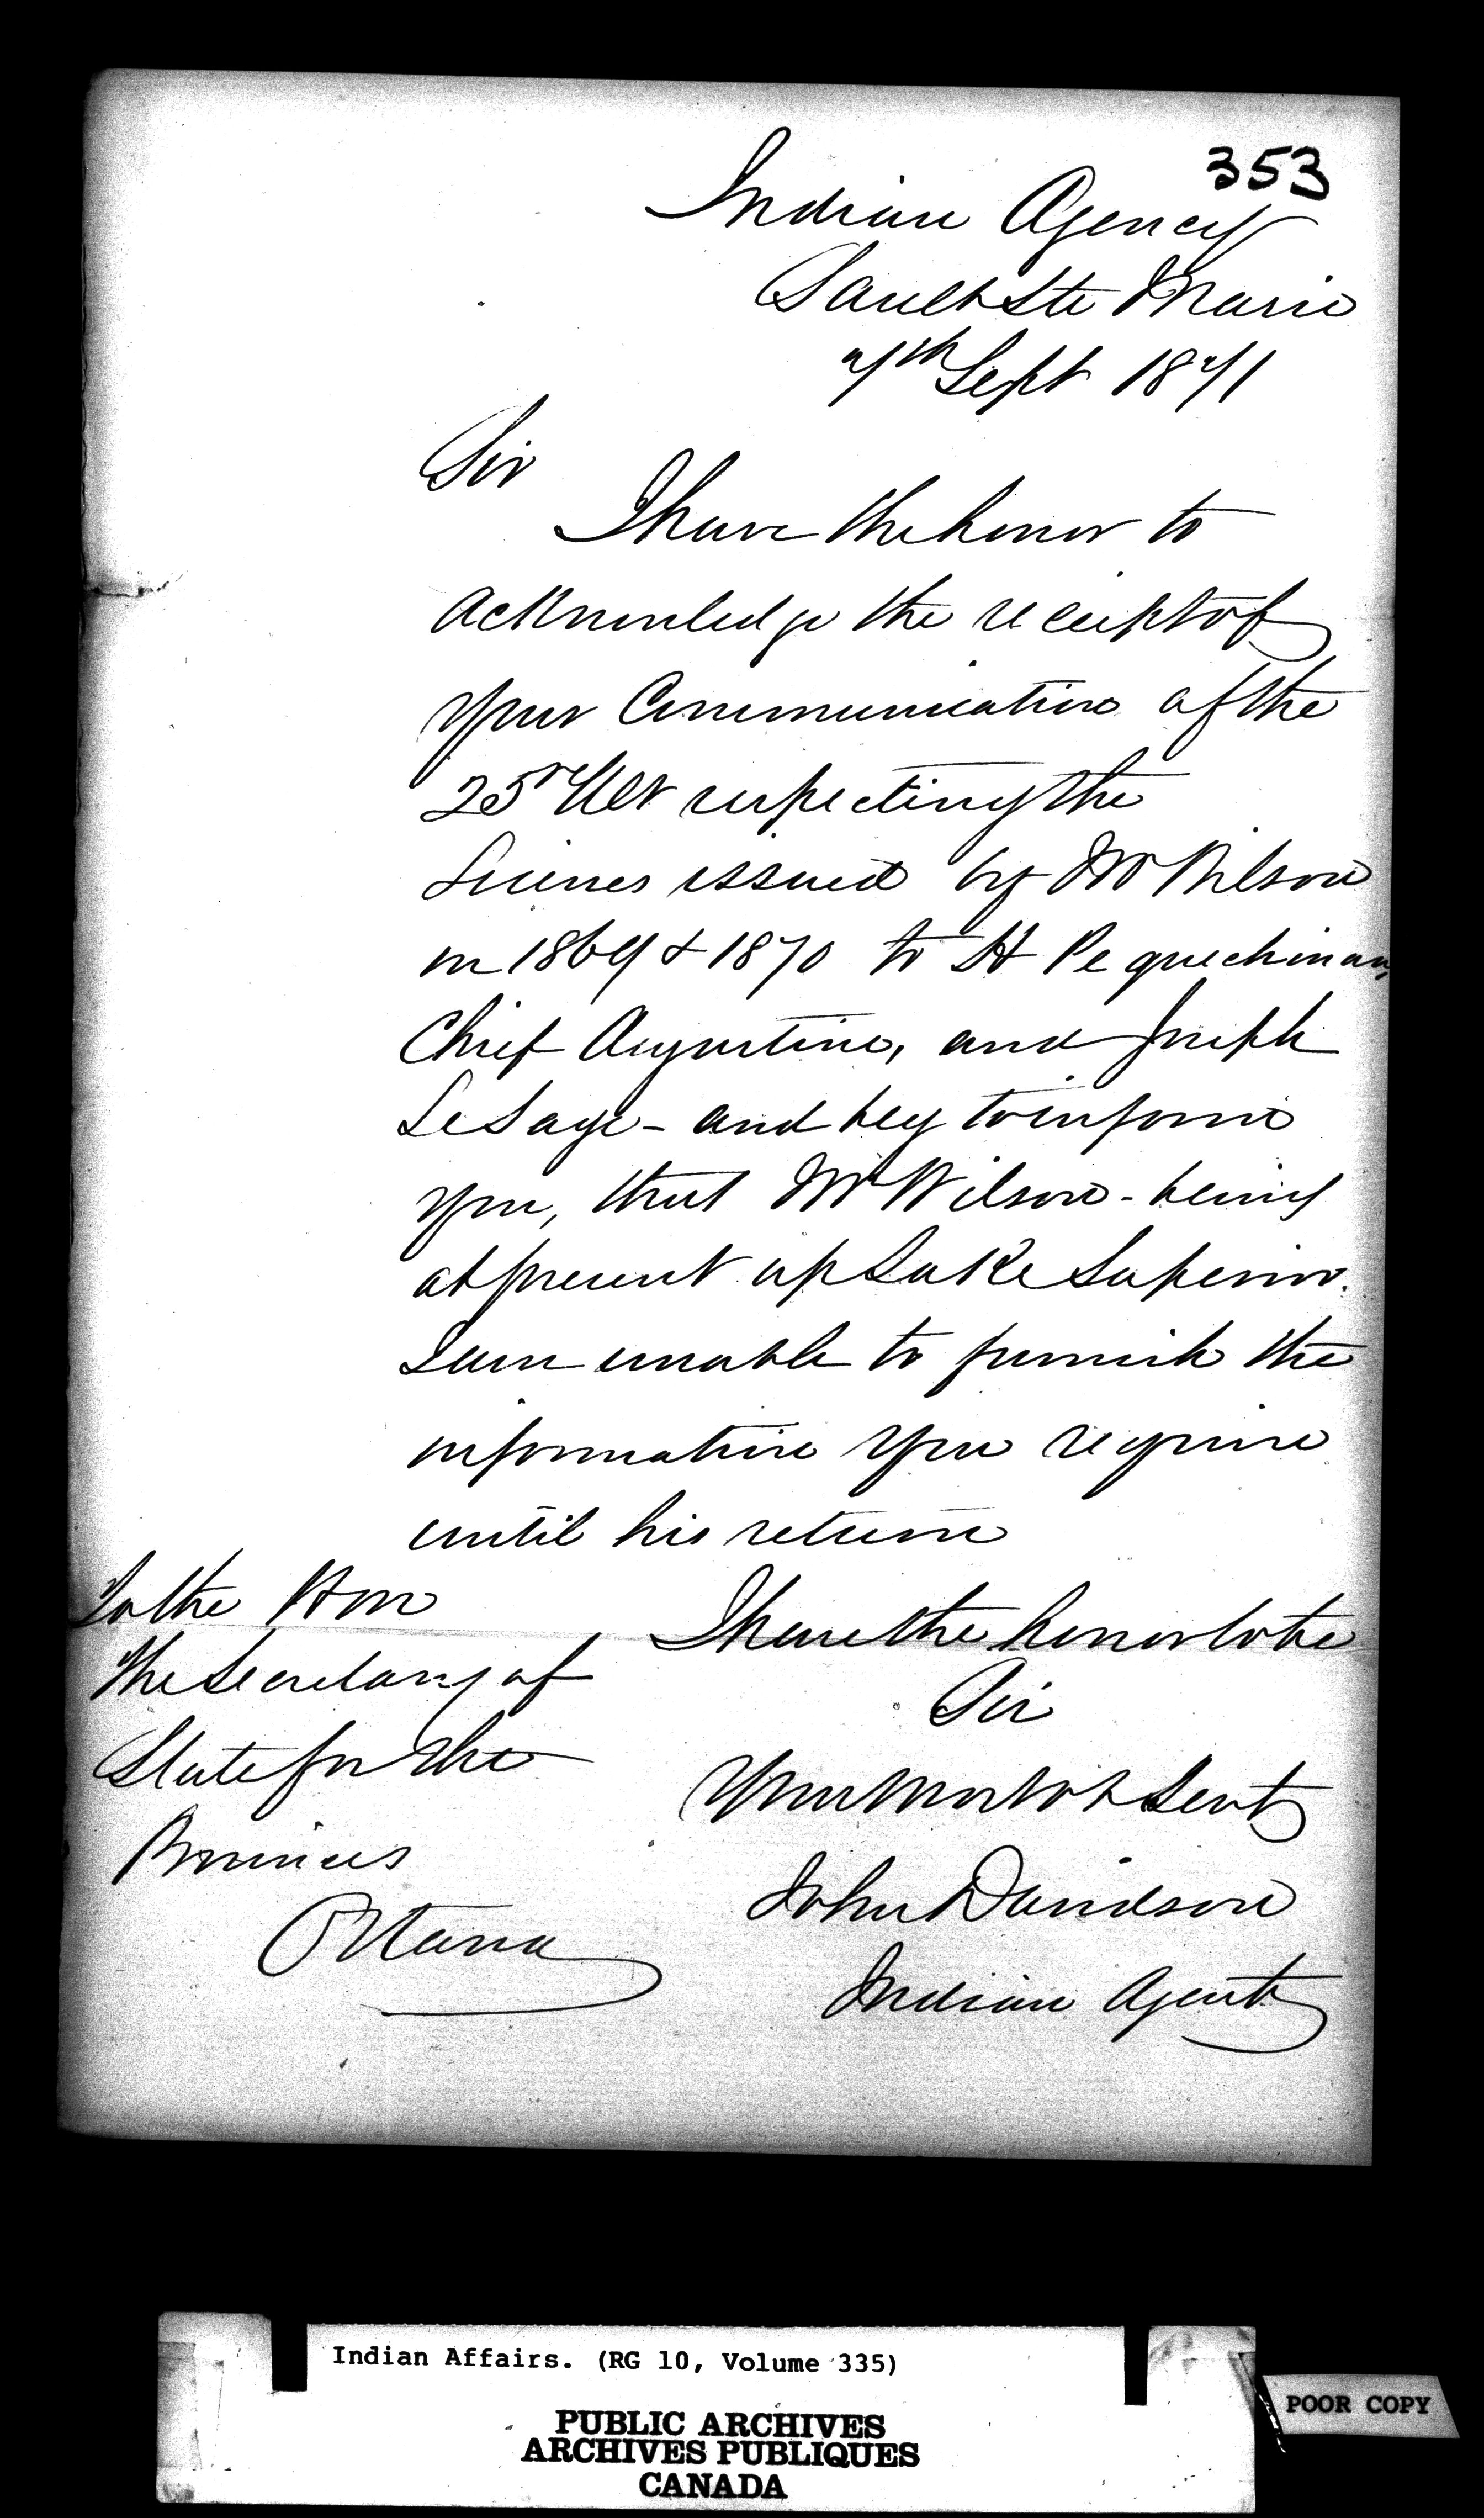 353
Indian Agency
Sault Ste Marie
7th Sept 1871
Sir
I have the honor to
acknowledge the receipt of
your Communication of the
25th Ult respecting the
Licenses issued by Mr Wilson
in 1869 & 1870 to H Pequechinan,
Chief Augustine, and Joseph
LeSage - and beg to inform
you, that Mr Wilson - being
at present up Lake Superior.
I am unable to furnish the
information you require
until his return
I have the honor to be
Sir
Your Most Obt Servt
John Davidson
Indian Agent
To the Hon
The Secretary of
State for the
Provinces
Ottawa
Indian Affairs. (RG 10, Volume 335)
PUBLIC ARCHIVES
ARCHIVES PUBLIQUES
CANADA
POOR COPY